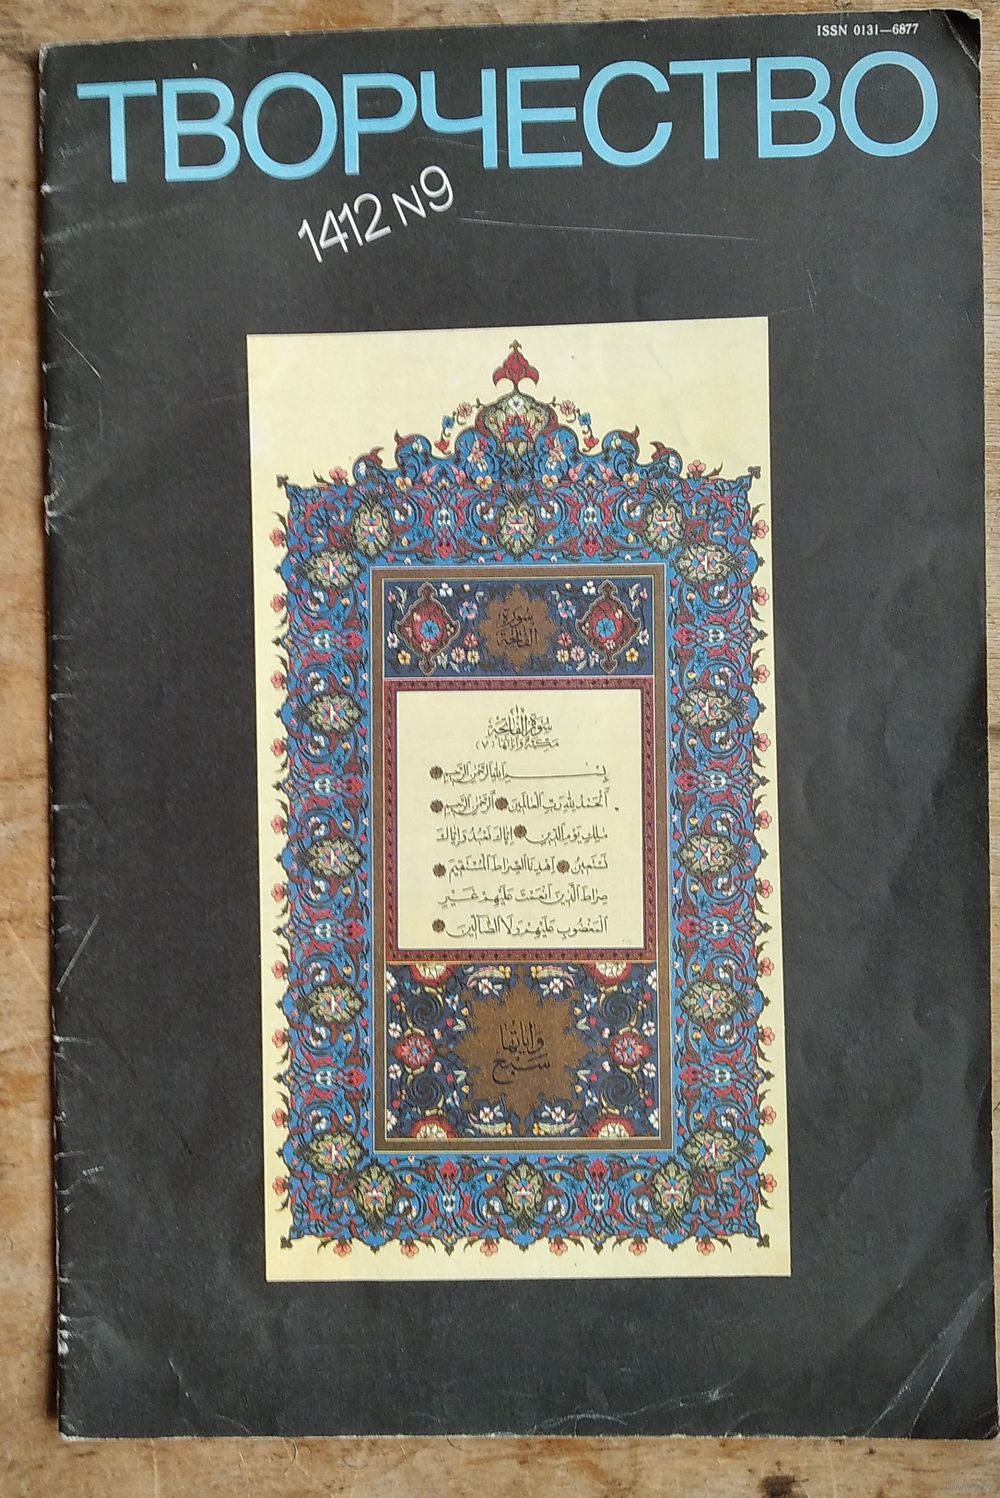 ISSN 0131—6877
ТВОРЧЕСТВО
1412 N9
سورة
الفاتحة
سُورَةُ الْفَاتِحَةِ
مَكِّيَّة وَآيَاتُهَا (٧)
بِسْمِ اللَّهِ الرَّحْمَٰنِ الرَّحِيمِ
الْحَمْدُ لِلَّهِ رَبِّ الْعَالَمِينَ الرَّحْمَٰنِ الرَّحِيمِ
مَلِكِ يَوْمِ الدِّينِ إِيَّاكَ نَعْبُدُ وَإِيَّاكَ
نَسْتَعِينُ اهْدِنَا الصِّرَاطَ الْمُسْتَقِيمَ
صِرَاطَ الَّذِينَ أَنْعَمْتَ عَلَيْهِمْ غَيْرِ
الْمَغْضُوبِ عَلَيْهِمْ وَلَا الضَّالِّينَ
وَآيَاتُهَا
سَبْع